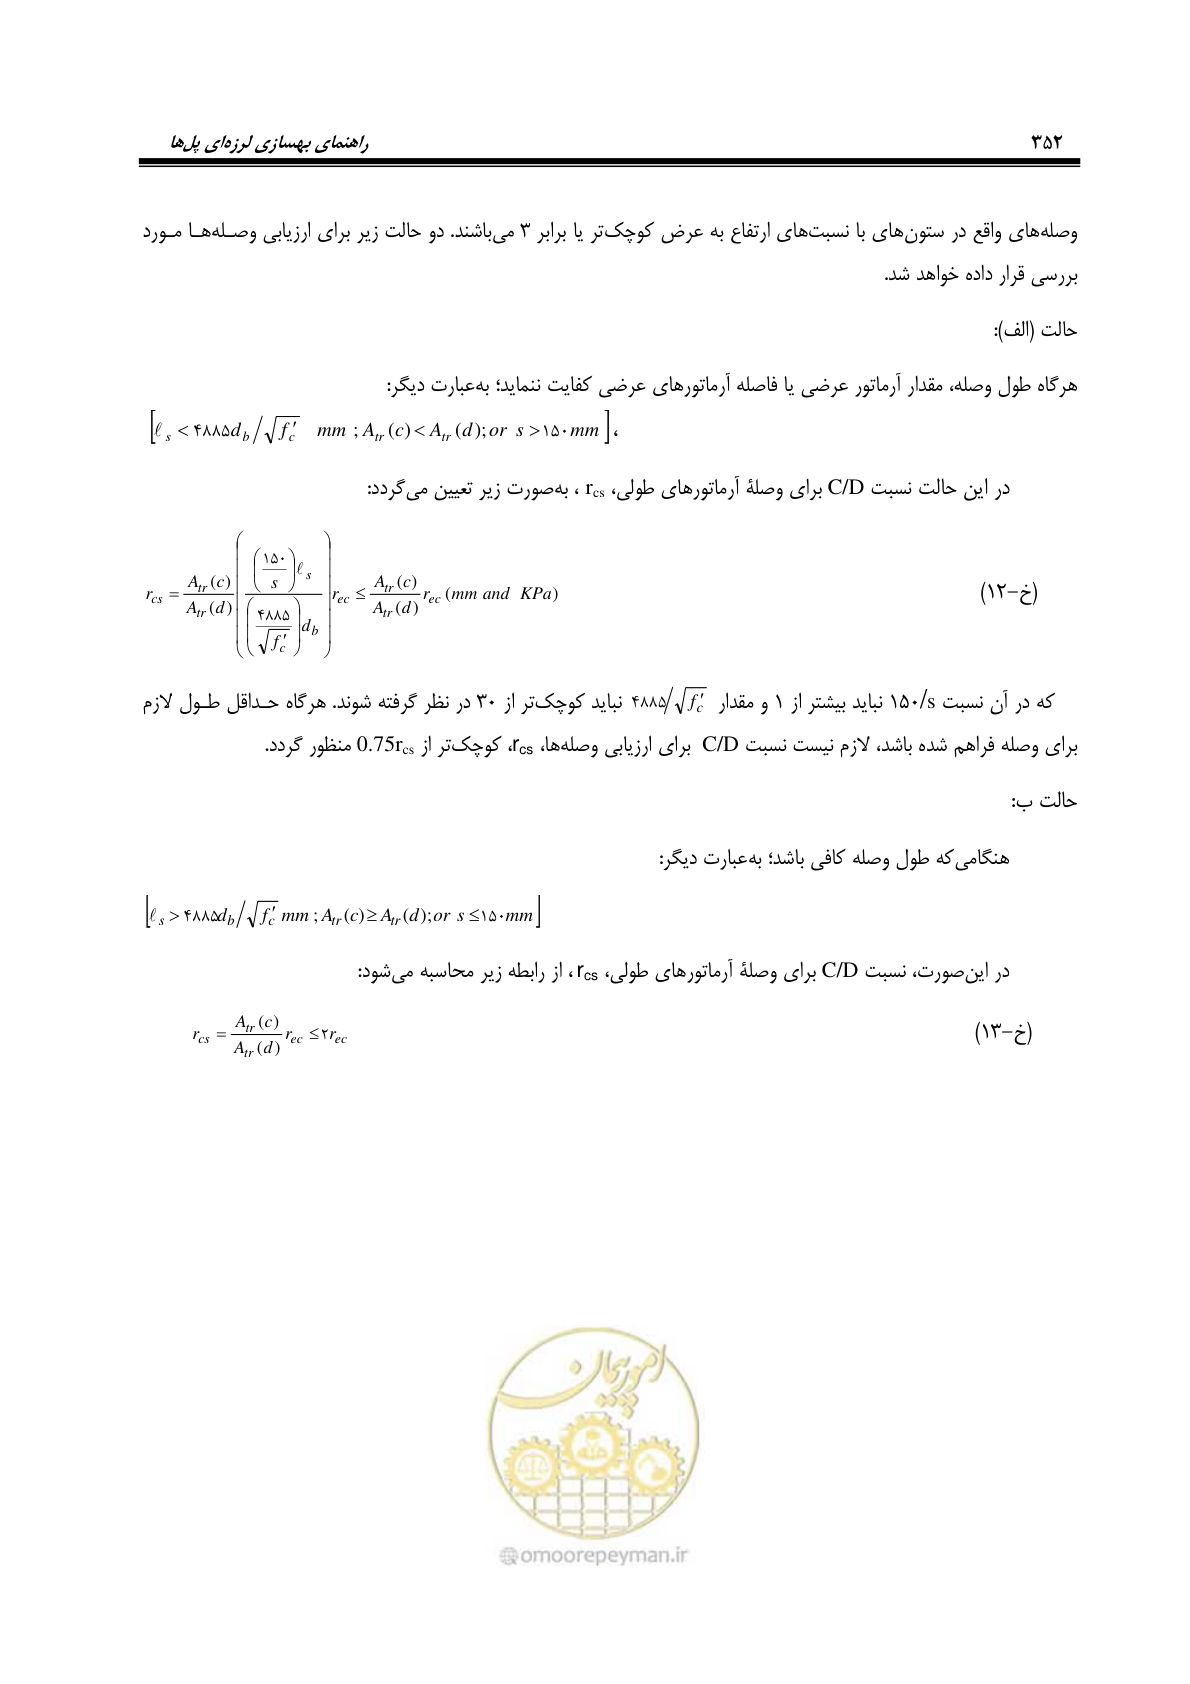 ۳۵۲ راهنمای بهسازی لرزه‌ای پل‌ها
وصله‌های واقع در ستون‌های با نسبت‌های ارتفاع به عرض کوچک‌تر یا برابر ۳ می‌باشند. دو حالت زیر برای ارزیابی وصـله‌هـا مـورد
بررسی قرار داده خواهد شد.
حالت (الف):
هرگاه طول وصله، مقدار آرماتور عرضی یا فاصله آرماتورهای عرضی کفایت ننماید؛ به‌عبارت دیگر:
[ℓ_s < ۴۸۸۵d_b / √f′_c mm ; A_tr (c) < A_tr (d); or s > ۱۵۰ mm ] ،
در این حالت نسبت C/D برای وصلهٔ آرماتورهای طولی، r_cs ، به‌صورت زیر تعیین می‌گردد:
(خ-۱۲) r_cs = A_tr (c) / A_tr (d) ( (۱۵۰ / s) ℓ_s / (۴۸۸۵ / √f′_c) d_b ) r_ec ≤ A_tr (c) / A_tr (d) r_ec (mm and KPa)
که در آن نسبت ۱۵۰/s نباید بیشتر از ۱ و مقدار ۴۸۸۵/√f′_c نباید کوچک‌تر از ۳۰ در نظر گرفته شوند. هرگاه حـداقل طـول لازم
برای وصله فراهم شده باشد، لازم نیست نسبت C/D برای ارزیابی وصله‌ها، r_cs، کوچک‌تر از 0.75r_cs منظور گردد.
حالت ب:
هنگامی‌که طول وصله کافی باشد؛ به‌عبارت دیگر:
[ℓ_s > ۴۸۸۵d_b / √f′_c mm ; A_tr (c) ≥ A_tr (d); or s ≤ ۱۵۰mm]
در این‌صورت، نسبت C/D برای وصلهٔ آرماتورهای طولی، r_cs ، از رابطه زیر محاسبه می‌شود:
(خ-۱۳) r_cs = A_tr (c) / A_tr (d) r_ec ≤ ۲r_ec
امور پیمان
@omoorepeyman.ir